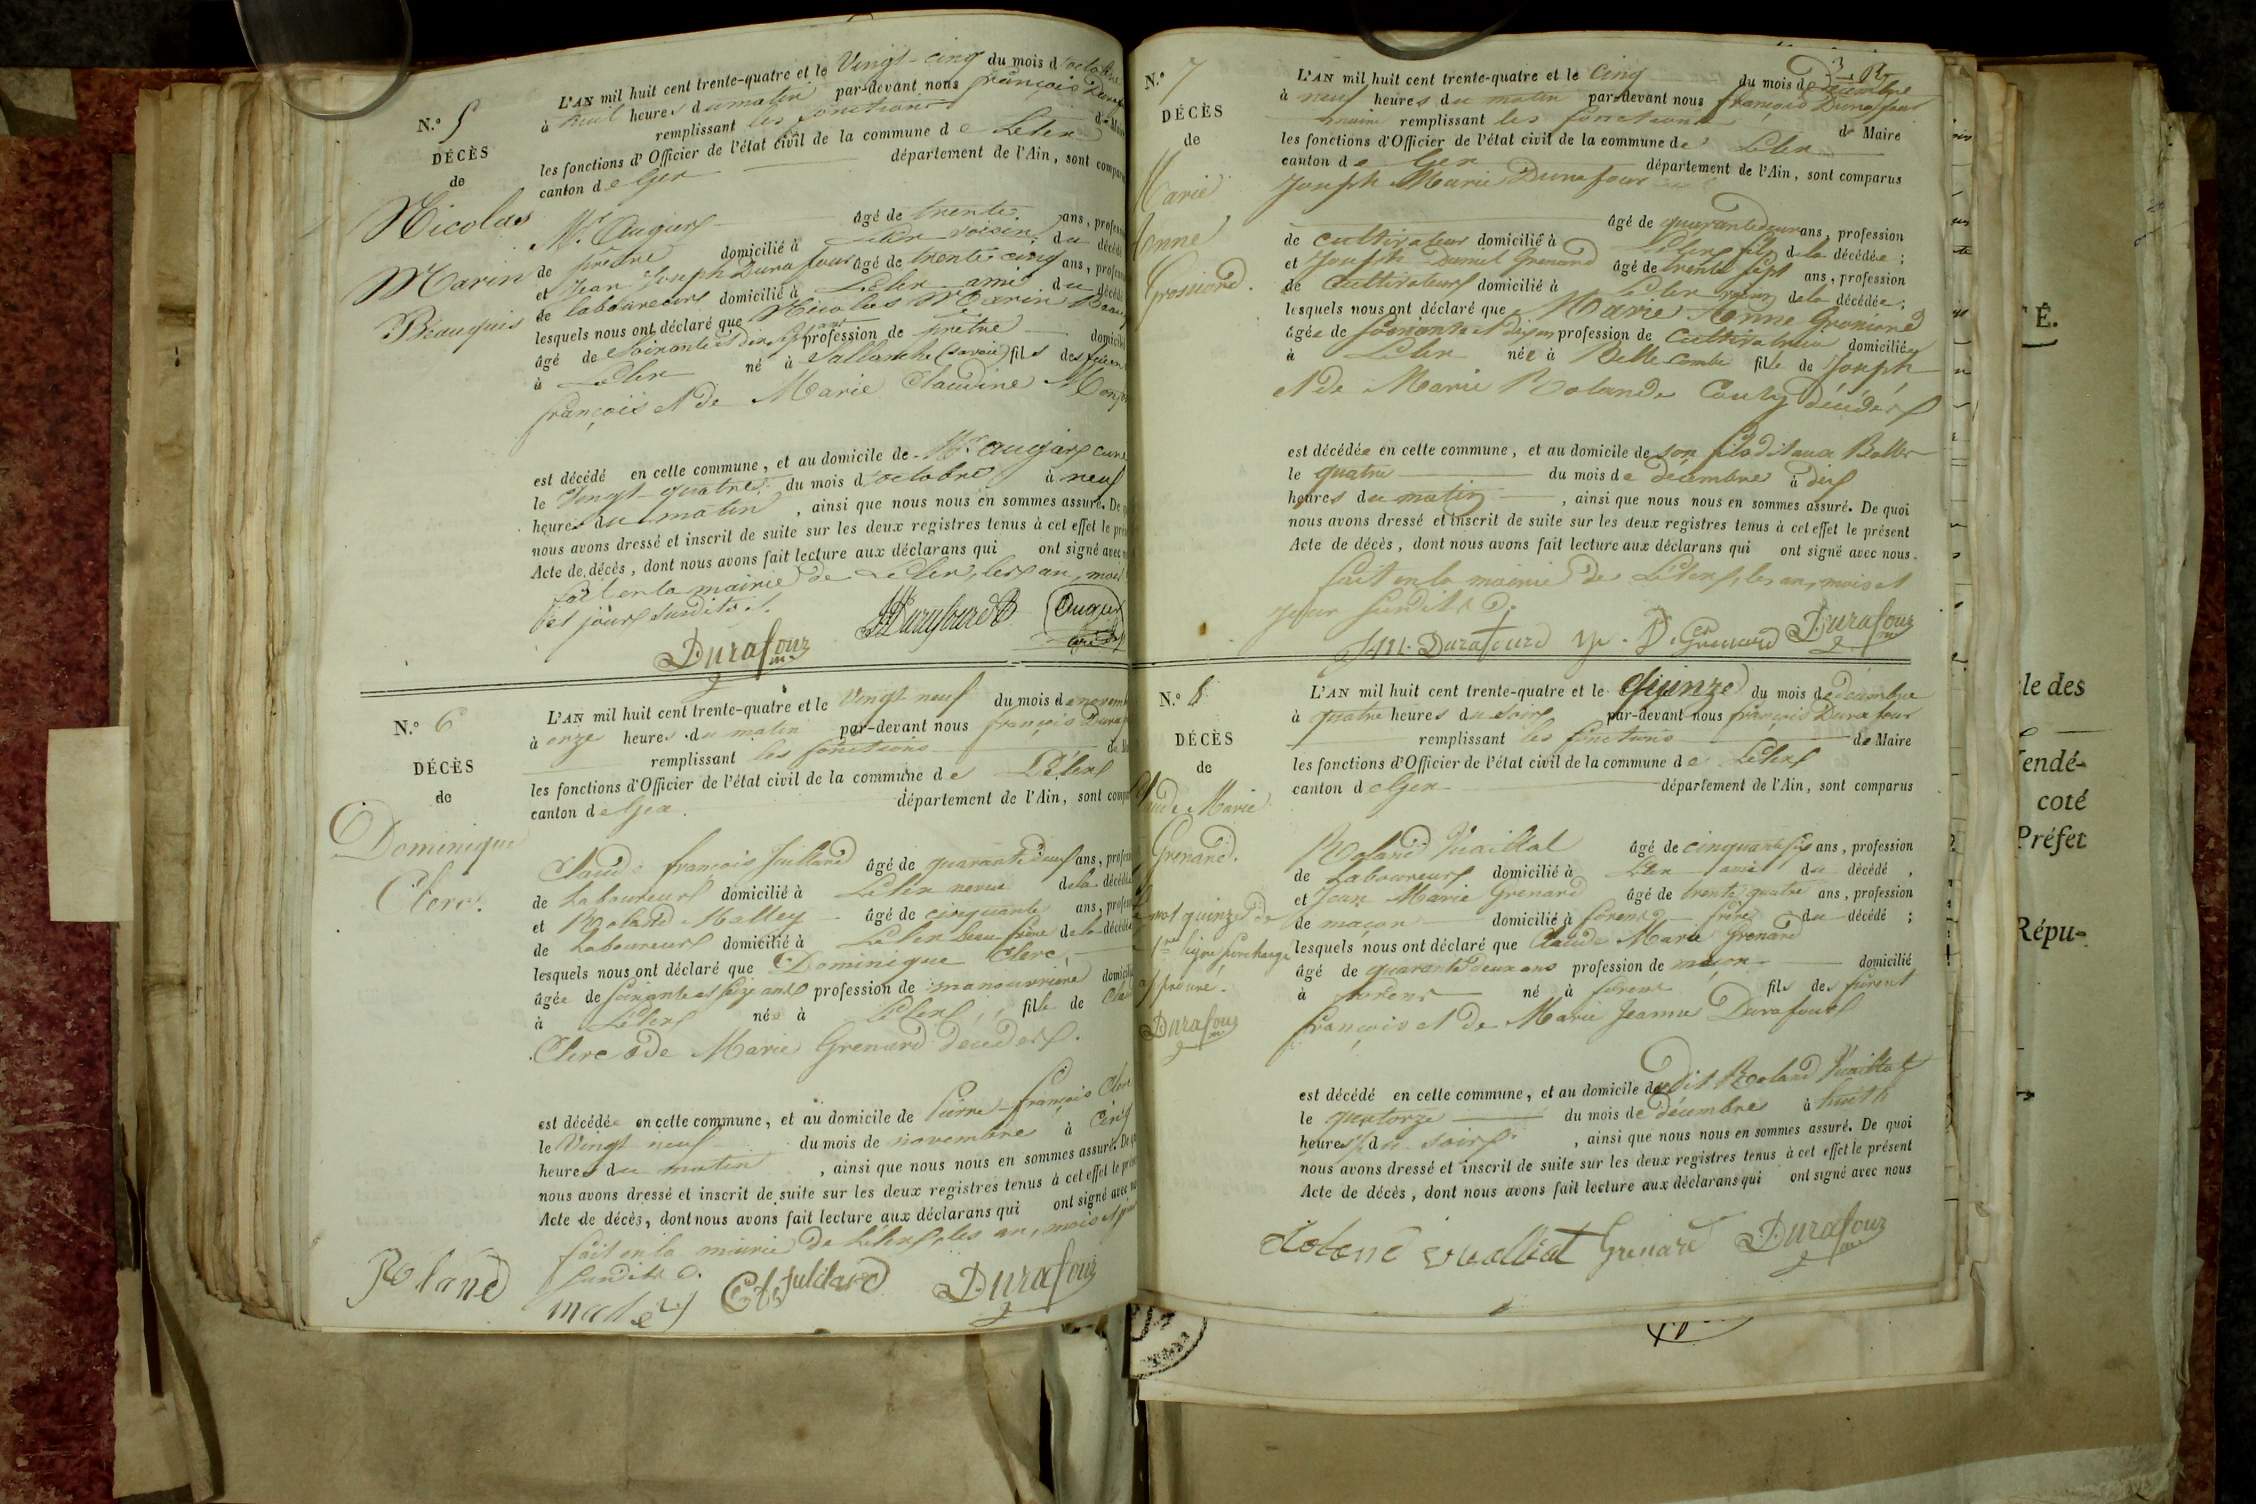 N.° 5
DÉCÈS
de
Nicolas
Marin
Beauquis
L'AN mil huit cent trente-quatre et le Vingt-cinq du mois d'octobre
à huit heures du matin par-devant nous françois
remplissant les fonctions de Maire
les fonctions d'Officier de l'état civil de la commune de Lélex
canton de Gex département de l'Ain, sont
Mr. âgé de trente ans,
de prêtre domicilié à Lélex voisin du décédé
et Jean Joseph Durafour âgé de trente cinq ans,
de laboureur domicilié à Lélex ami du décédé
lesquels nous ont déclaré que Nicolas Marin
âgé de Soixante et dix profession de prêtre
à Lélex né à Sallanche (Savoie) fils des
françois et de Marie Claudine
est décédé en cette commune, et au domicile de Mr. curé
le Vingt quatre du mois d'octobre à neuf
heures du matin, ainsi que nous nous en sommes assuré. De
nous avons dressé et inscrit de suite sur les deux registres tenus à cet effet le
Acte de décès, dont nous avons fait lecture aux déclarans qui ont signé avec
fait en la mairie de Lélex, les an, mois
et jour susdits.
Durafour
N.° 6
DÉCÈS
de
Dominique
Clerc
L'AN mil huit cent trente-quatre et le Vingt neuf du mois de
à onze heures du matin par-devant nous françois
remplissant les fonctions
les fonctions d'Officier de l'état civil de la commune de Lélex
canton de Gex département de l'Ain, sont
Claude françois Juilland âgé de quarante neuf ans,
de Laboureur domicilié à Lélex neveu de la décédée
et Roland Malley âgé de cinquante ans,
de Laboureur domicilié à Lélex beau-frère de la décédée
lesquels nous ont déclaré que Dominique Clerc,
âgée de soixante et seize ans profession de manouvrière
à Lélex née à Lélex, fille de
Clerc & de Marie Grenard décédés.
est décédée en cette commune, et au domicile de Pierre-françois Clerc
le Vingt neuf du mois de novembre à cinq
heures du matin, ainsi que nous nous en sommes assuré. De
nous avons dressé et inscrit de suite sur les deux registres tenus à cet effet le
Acte de décès, dont nous avons fait lecture aux déclarans qui ont signé avec
fait en la mairie de Lélex, les an, mois et
susdits.
Roland
Durafour
N.° 7
DÉCÈS
de
Marie
Anne
L'AN mil huit cent trente-quatre et le Cinq du mois de décembre
à neuf heures du matin par-devant nous françois Durafour
remplissant les fonctions de Maire
les fonctions d'Officier de l'état civil de la commune de Lélex
canton de Gex département de l'Ain, sont comparus
Joseph Marie Durafour
âgé de quarante deux ans, profession
de cultivateur domicilié à Lélex fils de la décédée;
et Joseph Daniel Grenard âgé de trente sept ans, profession
de cultivateur domicilié à Lélex voisin de la décédée;
lesquels nous ont déclaré que Marie Anne
âgée de profession de Cultivatrice domiciliée
à Lélex née à Bellecombe fille de Joseph
et de Marie Rolande décédés
est décédée en cette commune, et au domicile de son fils
le quatre du mois de décembre à dix
heures du matin, ainsi que nous nous en sommes assuré. De quoi
nous avons dressé et inscrit de suite sur les deux registres tenus à cet effet le présent
Acte de décès, dont nous avons fait lecture aux déclarans qui ont signé avec nous.
fait en la mairie de Lélex, les an, mois et
jour susdits.
J M. Durafourd Grenard Durafour
N.° 8
DÉCÈS
de
Claude Marie
Grenard.
Le mot quinze de
1re ligne surchargé
approuvé.
Durafour
L'AN mil huit cent trente-quatre et le Quinze du mois de décembre
à quatre heures du soir par-devant nous françois Durafour
remplissant les fonctions de Maire
les fonctions d'Officier de l'état civil de la commune de Lélex
canton de Gex département de l'Ain, sont comparus
Roland Vuaillat âgé de cinquante six ans, profession
de Laboureur domicilié à Lélex ami du décédé,
et Jean Marie Grenard âgé de trente quatre ans, profession
de maçon domicilié à forens frère du décédé;
lesquels nous ont déclaré que Claude Marie Grenard
âgé de quarante deux ans profession de maçon domicilié
à forens né à forens fils des furent
françois et de Marie Jeanne Durafour
est décédé en cette commune, et au domicile dudit Roland Vuaillat
le quatorze du mois de décembre à huit
heures du soir, ainsi que nous nous en sommes assuré. De quoi
nous avons dressé et inscrit de suite sur les deux registres tenus à cet effet le présent
Acte de décès, dont nous avons fait lecture aux déclarans qui ont signé avec nous
Grenard Durafour
É.
le des
endé-
coté
Préfet
Répu-